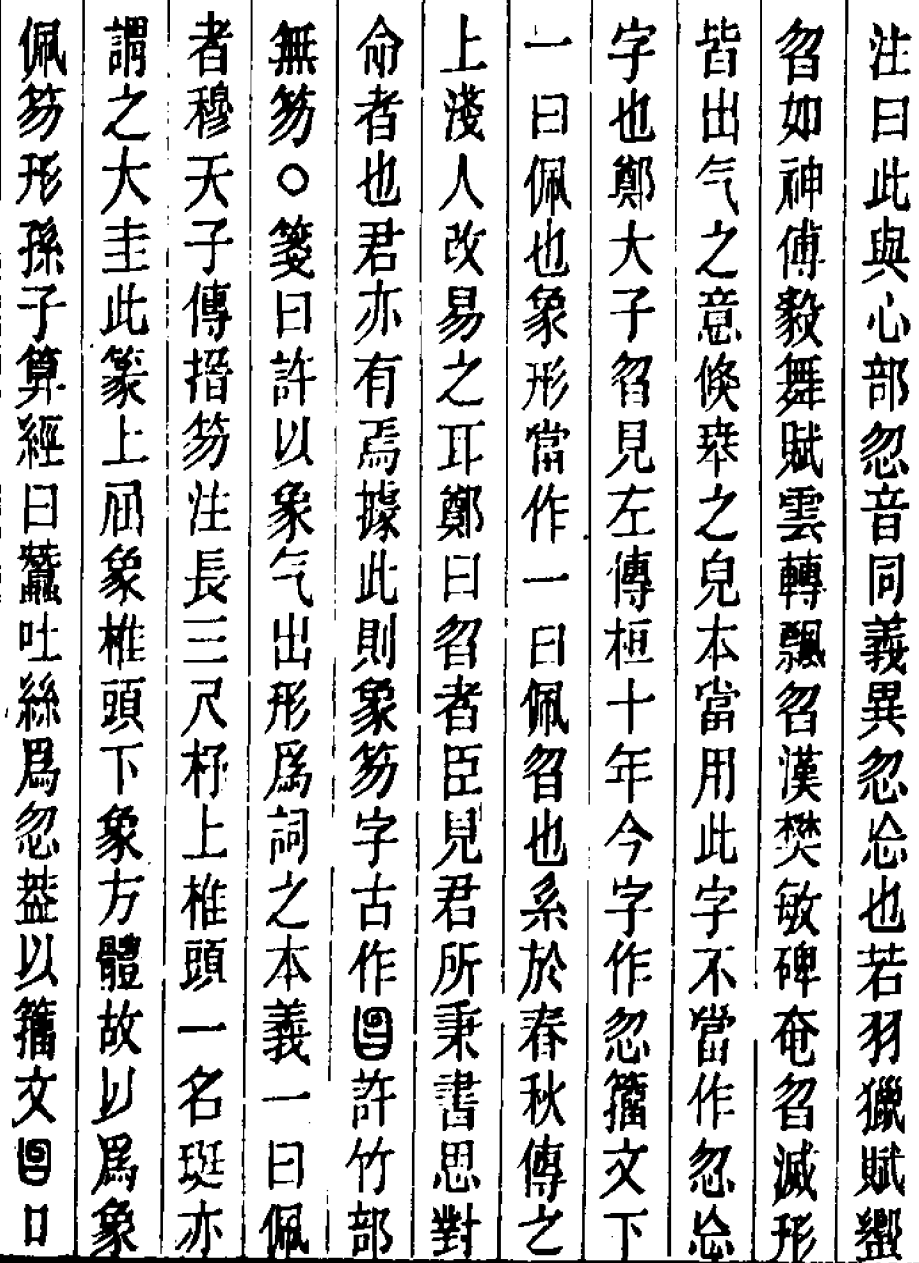 注曰此與心部忽音同義異忽忘也若羽獵賦蠁
曶如神傅毅舞賦雲轉飄曶漢樊敏碑奄曶滅形
皆出气之意倏𠦪之皃本當用此字不當作忽忘
字也鄭大子曶見左傳桓十年今字作忽籀文下
一曰佩也象形當作一曰佩曶也系於春秋傳之
上淺人改易之耳鄭曰曶者臣見君所秉書思對
命者也君亦有焉據此則象笏字古作𡇵許竹部
無笏○箋曰許以象气出形爲詞之本義一曰佩
者穆天子傳搢笏注長三尺杼上椎頭一名珽亦
謂之大圭此篆上屈象椎頭下象方體故以爲象
佩笏形孫子算經曰蠶吐絲爲忽葢以籀文𡇵口